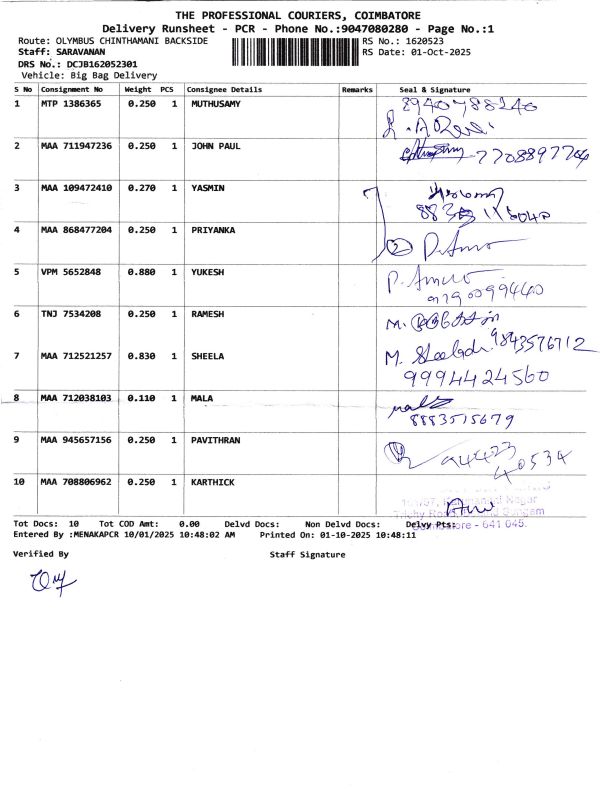 THE PROFESSIONAL COURIERS, COIMBATORE
Delivery Runsheet - PCR - Phone No.:9047080280 - Page No.:1
Route: OLYMBUS CHINTHAMANI BACKSIDE
RS No.: 1620523
Staff: SARAVANAN
RS Date: 01-Oct-2025
DRS No.: DCJB162052301
Vehicle: Big Bag Delivery
S No Consignment No Weight PCS Consignee Details Remarks Seal & Signature
1 MTP 1386365 0.250 1 MUTHUSAMY 8940788240
2 MAA 711947236 0.250 1 JOHN PAUL 7708897724
3 MAA 109472410 0.270 1 YASMIN
4 MAA 868477204 0.250 1 PRIYANKA 2
5 VPM 5652848 0.880 1 YUKESH
9790099440
6 TNJ 7534208 0.250 1 RAMESH M.
7 MAA 712521257 0.830 1 SHEELA M. 9843576712
9994424560
8 MAA 712038103 0.110 1 MALA mala
8883515679
9 MAA 945657156 0.250 1 PAVITHRAN 94423
40534
10 MAA 708806962 0.250 1 KARTHICK
Nagar
Coimbatore - 641 045.
Tot Docs: 10 Tot COD Amt: 0.00 Delvd Docs: Non Delvd Docs: Delvy Pts:
Entered By :MENAKAPCR 10/01/2025 10:48:02 AM Printed On: 01-10-2025 10:48:11
Verified By Staff Signature